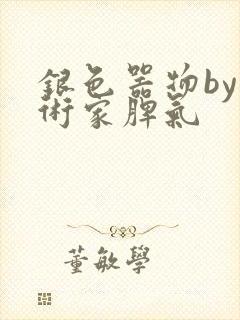 銀色器物by
術家脾氣
董敏學